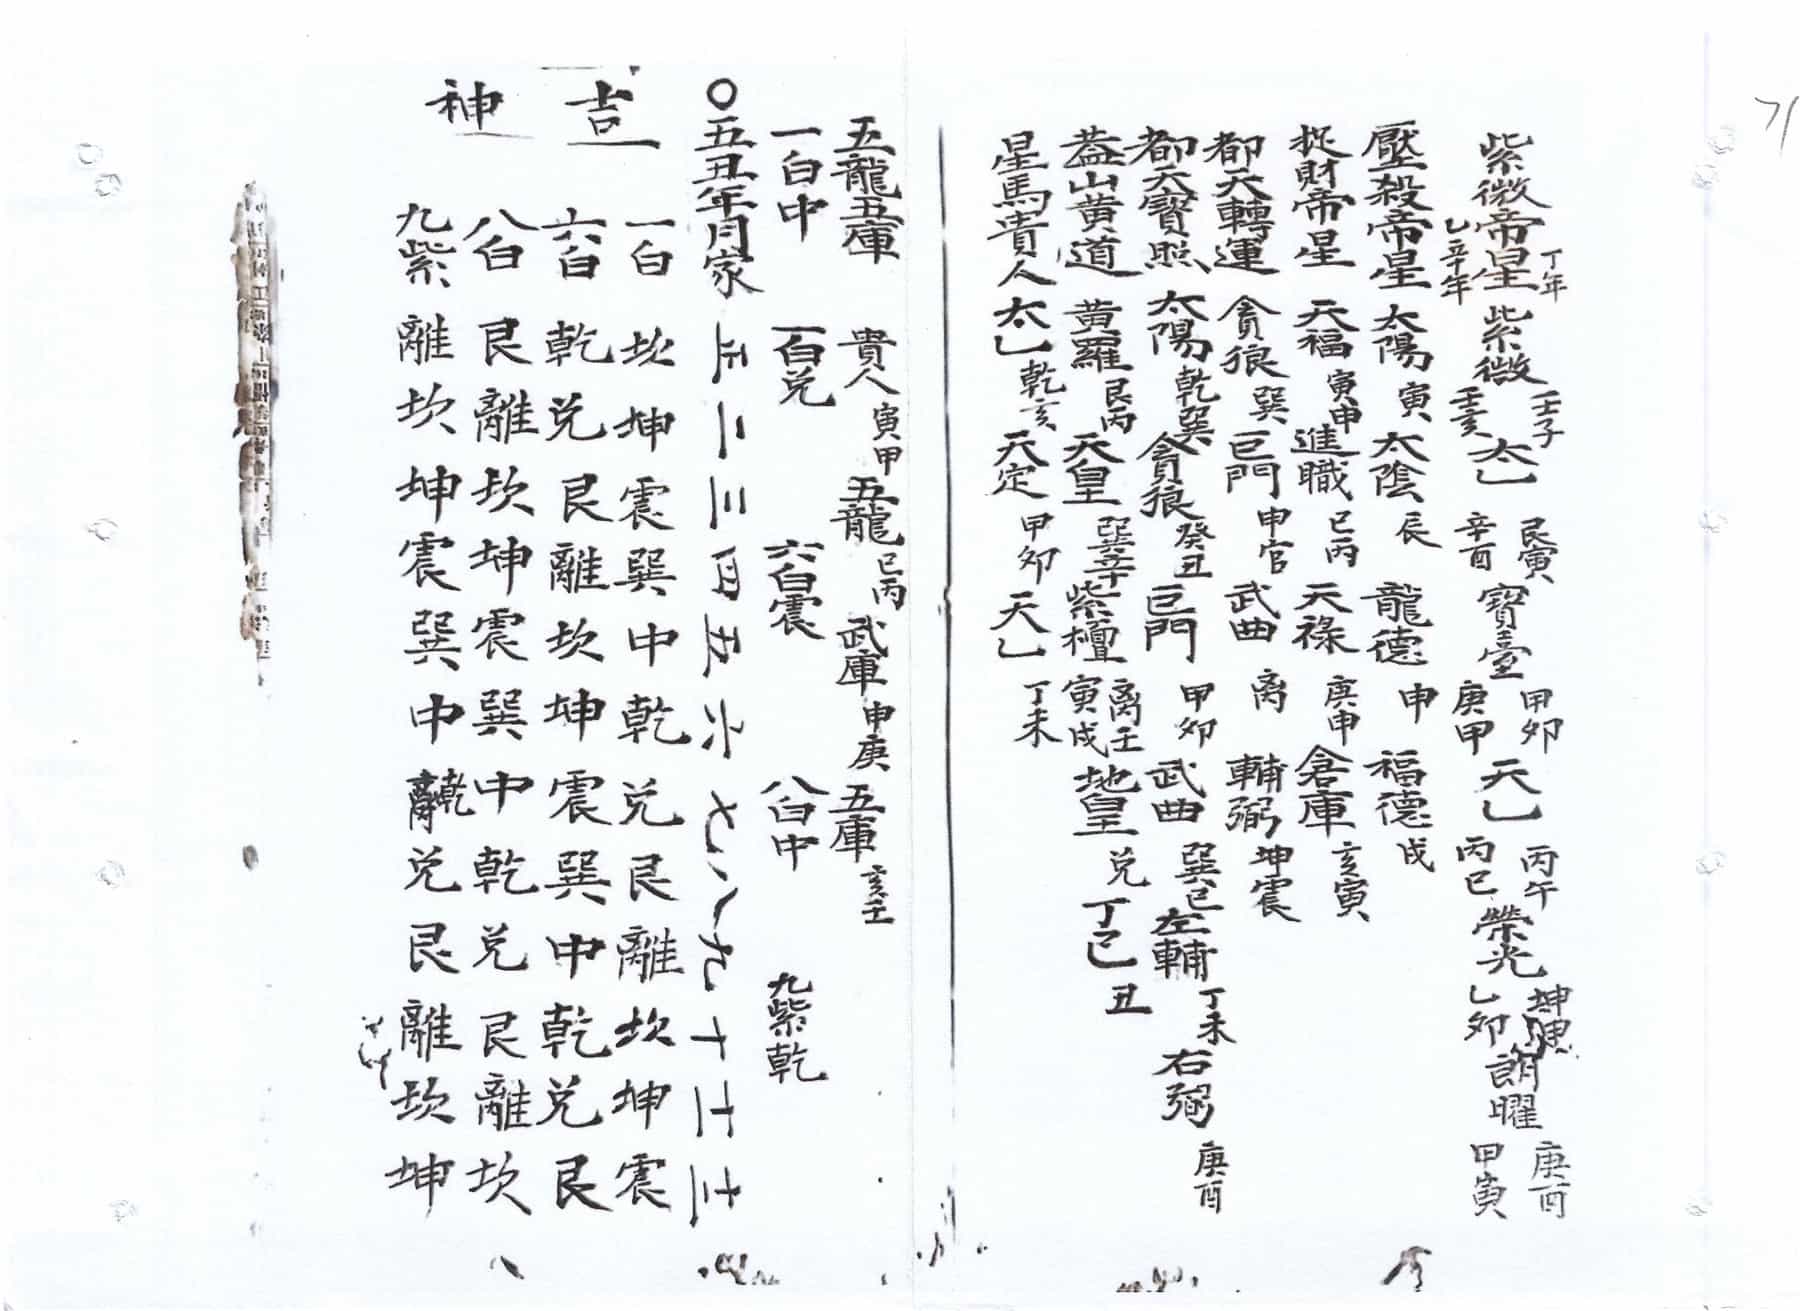 紫微帝星 丁年 乙辛年 紫微 壬子 壬亥 太乙 艮寅 辛酉 寶臺 甲卯 庚甲 天乙 丙午 丙巳 榮光 坤 乙卯 朗曜 庚酉 甲寅
壓殺帝星 太陽 寅 太陰 辰 龍德 申 福德 戌
捉財帝星 天福 寅申 進職 巳丙 天祿 庚申 倉庫 亥寅
都天轉運 貪狼 巽 巨門 申官 武曲 离 輔弼 坤震
都天寶照 太陽 乾巽 貪狼 癸丑 巨門 甲卯 武曲 巽巳 左輔 丁未 右弼 庚酉
盖山黄道 黄羅 艮丙 天皇 巽辛 紫檀 离壬 寅戌 地皇 兌 丁巳 丑
星馬貴人 太乙 乾亥 天定 甲卯 天乙 丁未
五龍五庫 貴人 寅甲 五龍 巳丙 武庫 申庚 五庫 亥壬
一白中 一白兌 六白震 八白中 九紫乾
○五丑年月家 正 二 三 四 五 六 七 八 九 十 十一 十二
吉神
一白 坎 坤 震 巽 中 乾 兌 艮 離 坎 坤 震
六白 乾 兌 艮 離 坎 坤 震 巽 中 乾 兌 艮
八白 艮 離 坎 坤 震 巽 中 乾 兌 艮 離 坎
九紫 離 坎 坤 震 巽 中 乾 兌 艮 離 坎 坤